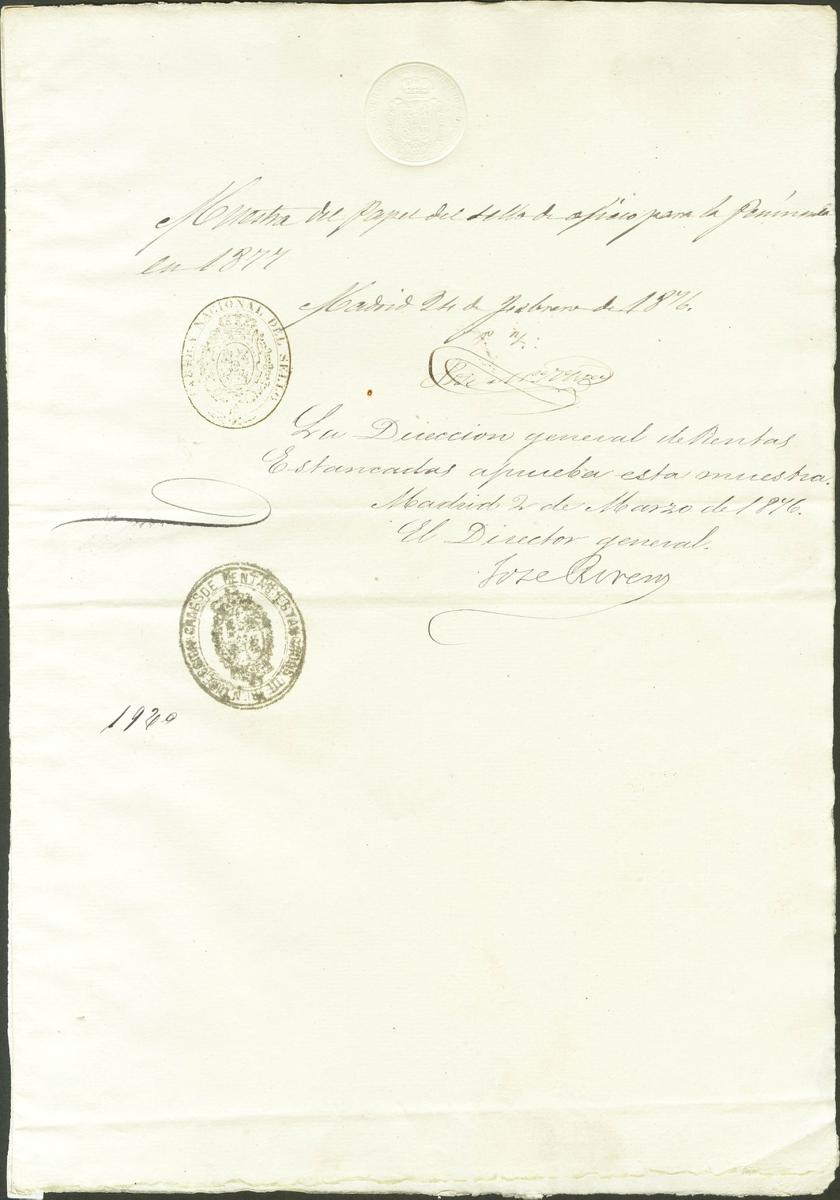 Muestra del Papel del Sello de oficio para la Península
en 1877
FABRICA NACIONAL DEL SELLO
Madrid 24 de Febrero de 1876.
La Direccion general de Rentas
Estancadas aprueba esta muestra.
Madrid 2 de Marzo de 1876.
El Director general.
Jose Rivero
DE RENTAS ESTAN
1920